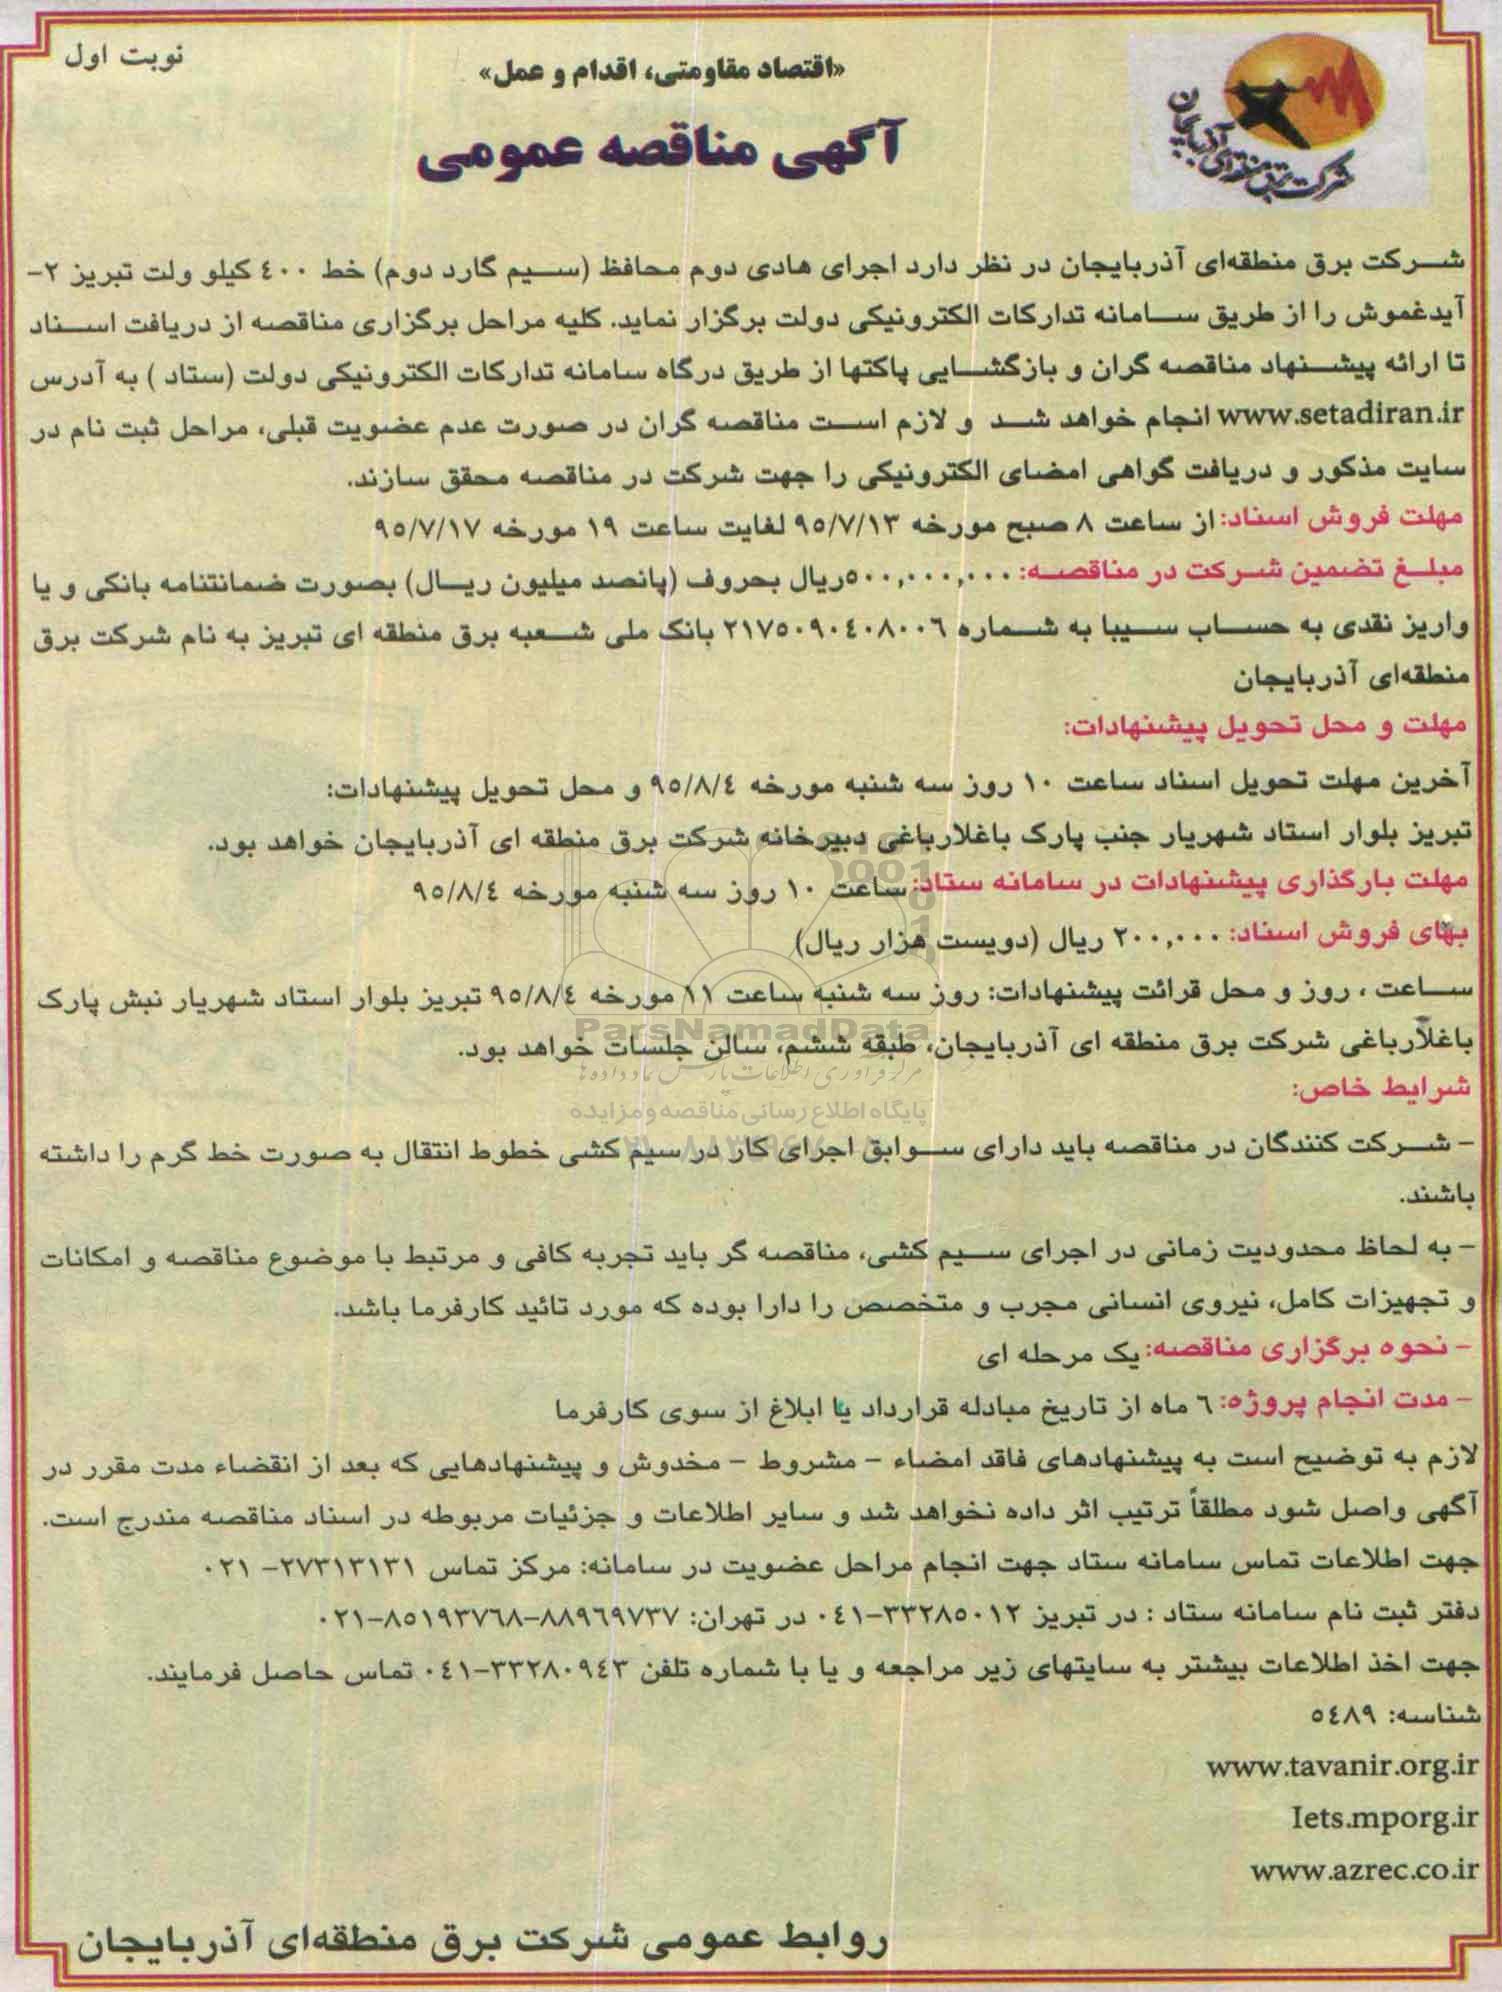 نوبت اول
«اقتصاد مقاومتی، اقدام و عمل»
شرکت برق منطقه‌ای آذربایجان
آگهی مناقصه عمومی
شرکت برق منطقه‌ای آذربایجان در نظر دارد اجرای هادی دوم محافظ (سیم گارد دوم) خط ٤٠٠ کیلو ولت تبریز ٢-
آیدغموش را از طریق سامانه تدارکات الکترونیکی دولت برگزار نماید. کلیه مراحل برگزاری مناقصه از دریافت اسناد
تا ارائه پیشنهاد مناقصه گران و بازگشایی پاکتها از طریق درگاه سامانه تدارکات الکترونیکی دولت (ستاد ) به آدرس
www.setadiran.ir انجام خواهد شد و لازم است مناقصه گران در صورت عدم عضویت قبلی، مراحل ثبت نام در
سایت مذکور و دریافت گواهی امضای الکترونیکی را جهت شرکت در مناقصه محقق سازند.
مهلت فروش اسناد: از ساعت ٨ صبح مورخه ٩٥/٧/١٣ لغایت ساعت ١٩ مورخه ٩٥/٧/١٧
مبلغ تضمین شرکت در مناقصه: ٥٠٠,٠٠٠,٠٠٠ریال بحروف (پانصد میلیون ریال) بصورت ضمانتنامه بانکی و یا
واریز نقدی به حساب سیبا به شماره ٢١٧٥٠٩٠٤٠٨٠٠٦ بانک ملی شعبه برق منطقه ای تبریز به نام شرکت برق
منطقه‌ای آذربایجان
مهلت و محل تحویل پیشنهادات:
آخرین مهلت تحویل اسناد ساعت ١٠ روز سه شنبه مورخه ٩٥/٨/٤ و محل تحویل پیشنهادات:
تبریز بلوار استاد شهریار جنب پارک باغلارباغی دبیرخانه شرکت برق منطقه ای آذربایجان خواهد بود.
مهلت بارگذاری پیشنهادات در سامانه ستاد: ساعت ١٠ روز سه شنبه مورخه ٩٥/٨/٤
بهای فروش اسناد: ٢٠٠,٠٠٠ ریال (دویست هزار ریال)
ساعت ، روز و محل قرائت پیشنهادات: روز سه شنبه ساعت ١١ مورخه ٩٥/٨/٤ تبریز بلوار استاد شهریار نبش پارک
ParsNamadData
باغلارباغی شرکت برق منطقه ای آذربایجان، طبقه ششم، سالن جلسات خواهد بود.
مرکز فرآوری اطلاعات پارس نماد داده ها
شرایط خاص:
پایگاه اطلاع رسانی مناقصه و مزایده
- شرکت کنندگان در مناقصه باید دارای سوابق اجرای کار در سیم کشی خطوط انتقال به صورت خط گرم را داشته
باشند.
- به لحاظ محدودیت زمانی در اجرای سیم کشی، مناقصه گر باید تجربه کافی و مرتبط با موضوع مناقصه و امکانات
و تجهیزات کامل، نیروی انسانی مجرب و متخصص را دارا بوده که مورد تائید کارفرما باشد.
- نحوه برگزاری مناقصه: یک مرحله ای
- مدت انجام پروژه: ٦ ماه از تاریخ مبادله قرارداد یا ابلاغ از سوی کارفرما
لازم به توضیح است به پیشنهادهای فاقد امضاء - مشروط - مخدوش و پیشنهادهایی که بعد از انقضاء مدت مقرر در
آگهی واصل شود مطلقاً ترتیب اثر داده نخواهد شد و سایر اطلاعات و جزئیات مربوطه در اسناد مناقصه مندرج است.
جهت اطلاعات تماس سامانه ستاد جهت انجام مراحل عضویت در سامانه: مرکز تماس ٢٧٣١٣١٣١- ٠٢١
دفتر ثبت نام سامانه ستاد : در تبریز ٣٣٢٨٥٠١٢-٠٤١ در تهران: ٨٨٩٦٩٧٣٧-٨٥١٩٣٧٦٨-٠٢١
جهت اخذ اطلاعات بیشتر به سایتهای زیر مراجعه و یا با شماره تلفن ٣٣٢٨٠٩٤٣-٠٤١ تماس حاصل فرمایند.
شناسه: ٥٤٨٩
www.tavanir.org.ir
Iets.mporg.ir
www.azrec.co.ir
روابط عمومی شرکت برق منطقه‌ای آذربایجان